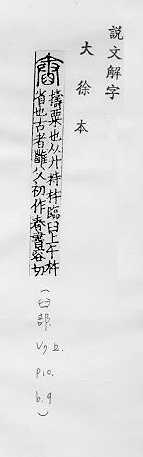 説文解字
大徐本
舂擣粟也从廾持杵臨臼上午杵
省也古者雝父初作舂書容切
(臼部. V7上. P10. b.9)